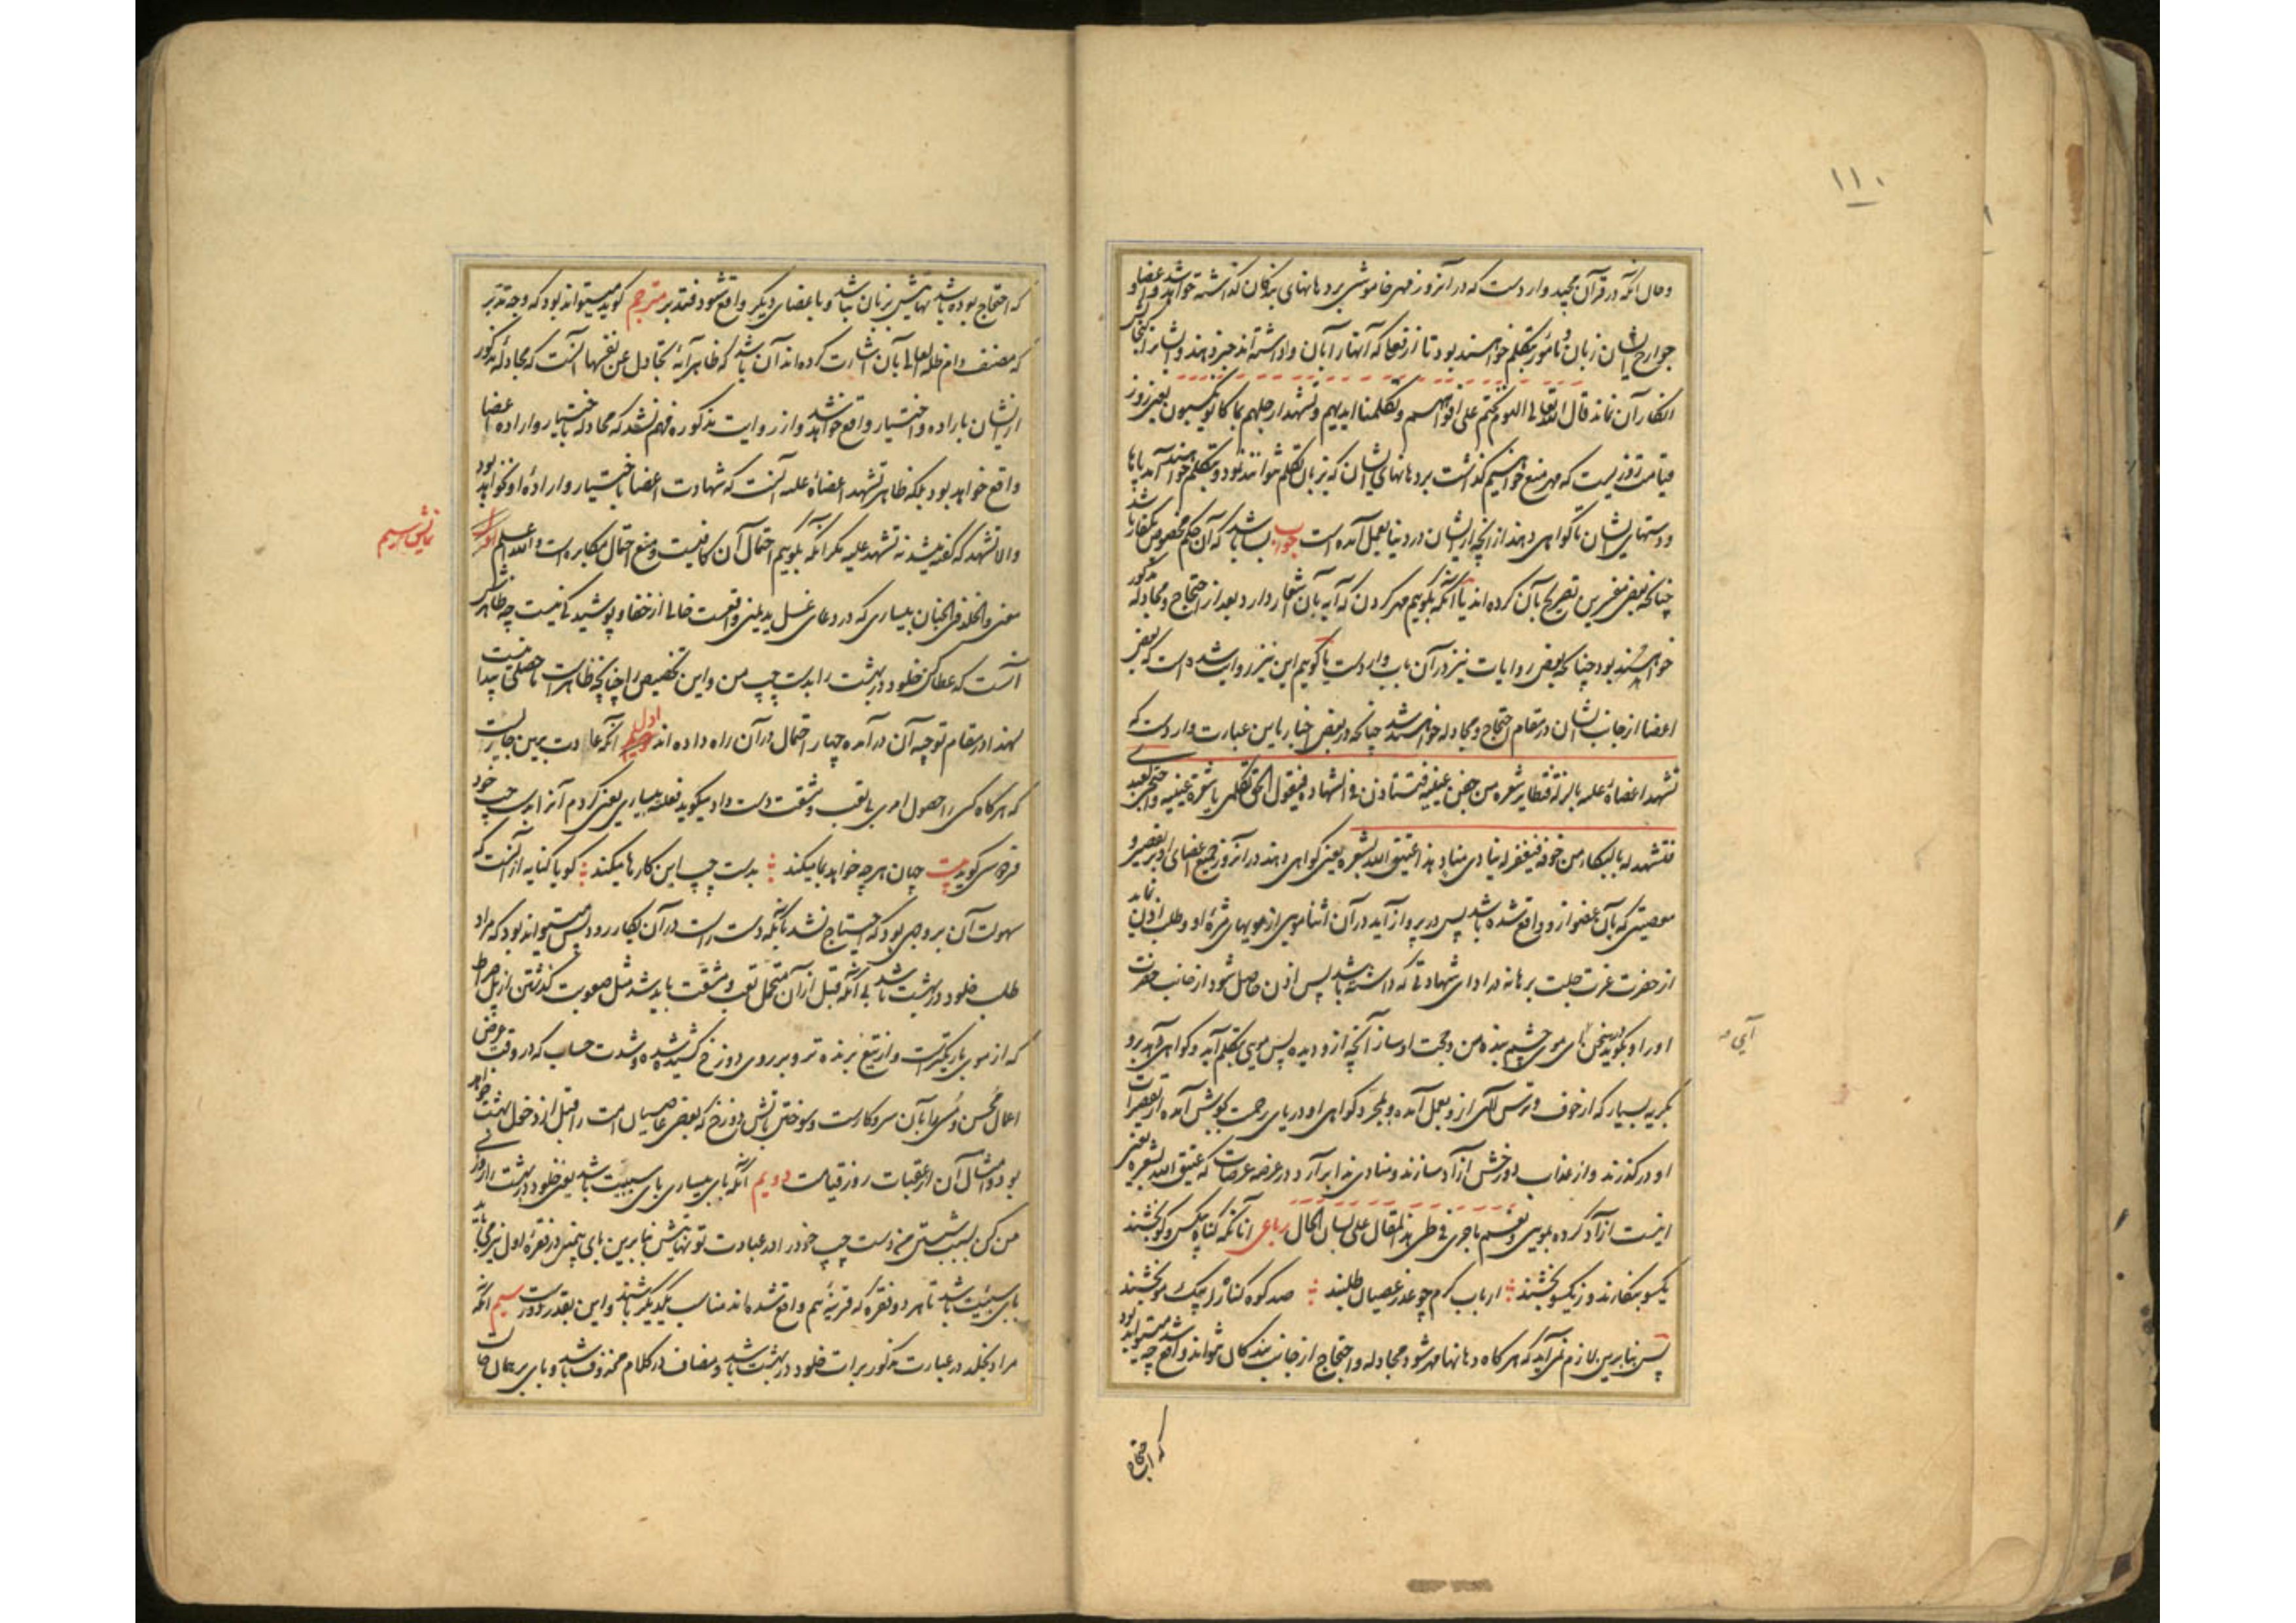 ۱۱۰
وحال آنکه در قرآن مجید وارد است که در آنروز مهر خاموشی بر دهانهای بندکان کذاشته خواهد شد و اعضا و
جوارح ایشان زبان و مأمور بتکلم خواهند بود تا از وقایعی که آنها را بآن واداشته‌اند خبر دهند و ایشانرا کنجایش
انکار آن نماند قال الله تعالی الیوم نختم علی افواههم وتکلمنا ایدیهم وتشهد ارجلهم بما کانوا یکسبون یعنی روز
قیامت روزیست که مهر منع خواهیم کذاشت بر دهانهای ایشان که بزبان تکلم نتوانند نمود و بتکلم خواهند آمد پاها
و دستهای ایشان تا کواهی دهند از آنچه از ایشان در دنیا بعمل آمده است جواب میباشد که آن حکم مخصوص بکفار باشد
چنانکه بعضی مفسرین تصریح بآن کرده‌اند یا آنکه بکوییم مهر کردن که آیه بآن اشعار دارد بعد از احتجاج و مجادله مذکور
خواهند بود چنانکه بعضی روایات نیز در آن باب وارد است یا کوییم این نیز روایت شده است که بعضی
اعضا از جانب ایشان در مقام احتجاج و مجادله خواهند شد چنانکه در بعضی اخبار باین عبارت وارد است که
تشهد اعضاؤه علیه بالزلة فتطایر شعره من جفن عینیه فتستاذن فی الشهادة فیقول الحق تکلمی یا شعرة عینیه واحتجی لعبدی
فتشهد له بالبکاء من خوفه فیغفر له ینادی مناد هذا عتیق الله بشعره یعنی کواهی دهند در آنروز جمیع اعضای او بتقصیر و
معصیتی که بآن عضو از او واقع شده باشد پس در پرواز آید در آن اثنا مویی از مویهای مژه او و طلب اذن نماید
از حضرت عزت جلت برهانه در ادای شهادتی که داشته باشد پس اذن حاصل شود از جانب حضرت
او را و بکوید سخن کن ای موی چشم بنده من و حجت او ساز آنچه از و دیده پس موی بتکلم آید و کواهی دهد برو
آی
بکریه بسیار که از خوف و ترس الهی از و بعمل آمده و بمجرد کواهی او دریای رحمت بجوش آمده از تقصیرات
او درکذرند و از عذاب دوزخش آزاد سازند و منادی ندا برآرد در عرصه عرصات که عتیق الله بشعره یعنی
اینست آزاد کرده بمویی ونعم ماجری فی طی هذا المقال علی لسان الحال رباعی آنانکه کناه بکس و کو بخشند
یکسو بنکارند و ز یکسو بخشند ارباب کرم چو عذر عصیان طلبند صد کوه کناه را بیک مو بخشند
پس بنابرین لازم نمی‌آید که هر کاه دهانها مهر شود مجادله و احتجاج از جانب بندکان نتواند واقع شد چه میتواند بود
که احتجاج
که احتجاج بوده باشد نهایتش بزبان نباشد و باعضای دیکر واقع شود فتدبر مترجم کوید میتواند بود که وجه تدبر
که مصنف دام ظله العالی بآن اشارت کرده‌اند آن باشد که ظاهر آیه تجادل عن نفسها آنست که مجادله مذکور
از ایشان باراده و اختیار واقع خواهد شد و از روایت مذکوره فهم نشد که مجادله باختیار و اراده اعضا
واقع خواهد بود بلکه ظاهر تشهد اعضاؤه علیه آنست که شهادت اعضا باختیار و اراده او نخواهد بود
والا تشهد که کفته میشد نه تشهد علیه مکر آنکه بکوییم احتمال آن کافیست و منع احتمال مکابره است والله اعلم
نمایش سیم
معنی والخلد فی الجنان بیساری که در دعای غسل ید یمنی واقعست خالی از خفا و پوشیدکی نیست چه ظاهرش
آنست که عطا کن خلود در بهشت را بدست چپ من و این تخصیص را چنانچه ظاهر است حاصلی نیست پیدا
لهذا در مقام توجیه آن در آمده چهار احتمال در آن راه داده‌اند اول آنکه عادت برین جاریست
که هر کاه کسی را حصول امری بی تعب و مشقت دست داد میکوید فعلته بیساری یعنی کردم آنرا بدست چپ خود
فردوسی کوید بیت جهان هر چه خواهد بما میکند بدست چپ این کارها میکند کویا کنایه از آنست که
سهولت آن بروجهی بود که احتیاج نشد بآنکه دست راست در آن بکار رود پس میتواند بود که مراد
طلب خلود در بهشت باشد بی آنکه قبل از آن متحمل تعب و مشقت باید شد مثل صعوبت کذشتن از پل صراط
که از موی باریکتر است و از تیغ برنده تر و بر روی دوزخ کشیده شده و شدت حساب که در وقت عرض
اعمال محسن و مسئ را بآن سروکارست و سوختن باتش دوزخ که بعضی عاصیان امت را قبل از دخول بهشت خواهد
بود و امثال آن از عقبات روز قیامت دویم آنکه بای بیساری بای سببیت باشد یعنی خلود در بهشت را روزی
من کن بسبب شستن من دست چپ خود را از عبادت تو نهایتش بنابرین بای بیمینی در فقره اول نیز می‌باید
بای سببیت باشد تا هر دو فقره که قرینه هم واقع شده‌اند مناسب یکدیکر باشند و این بقدر دور است سیم آنکه
مراد بخلد در عبارت مذکور برات خلود در بهشت باشد و مضاف در کلام محذوف باشد و بای بر همان حالت